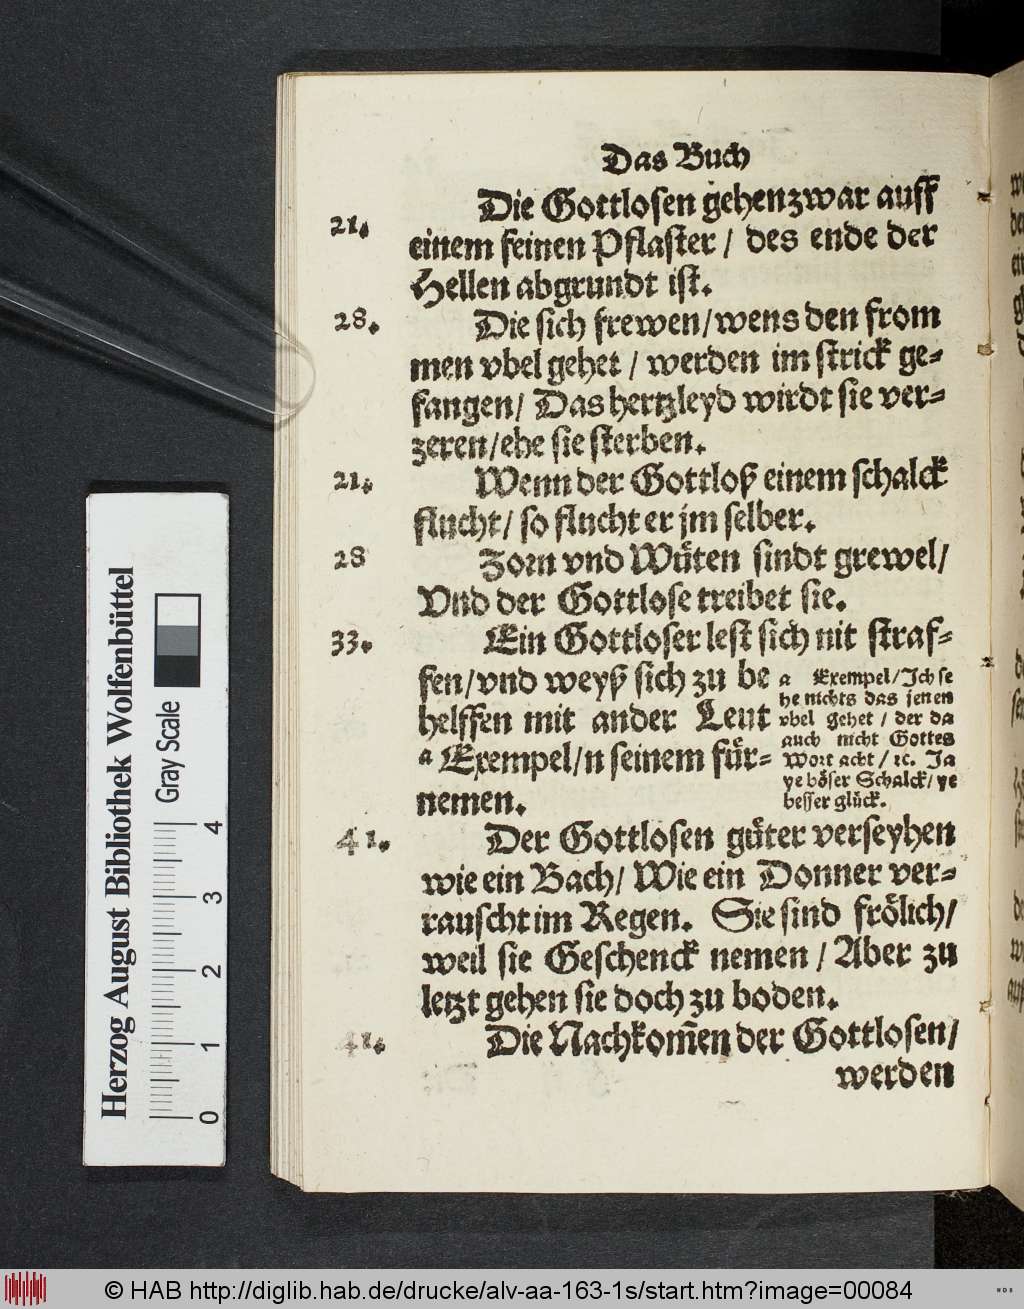 Das Buch
21. Die Gottlosen gehen zwar auff
einem feinen Pflaster / des ende der
Hellen abgrundt ist.
28. Die sich frewen / wens den from
men vbel gehet / werden im strick ge-
fangen / Das hertzleyd wirdt sie ver-
zeren / ehe sie sterben.
21. Wenn der Gottloß einem schalck
flucht / so flucht er jm selber.
28 Zorn vnd Wüten sindt grewel /
Vnd der Gottlose treibet sie.
33. Ein Gottloser lest sich nit straf-
fen / vnd weyß sich zu be
helffen mit ander Leut
a Exempel / n seinem für-
nemen.
a Exempel / Ich se
he nichts das jenen
vbel gehet / der da
auch nicht Gottes
Wort acht / ꝛc. Ja
ye böser Schalck / ye
besser glück.
41. Der Gottlosen güter verseyhen
wie ein Bach / Wie ein Donner ver-
rauscht im Regen. Sie sind frölich /
weil sie Geschenck nemen / Aber zu
letzt gehen sie doch zu boden.
41. Die Nachkom̃en der Gottlosen /
werden
Herzog August Bibliothek Wolfenbüttel
Gray Scale
0 1 2 3 4
© HAB http://diglib.hab.de/drucke/alv-aa-163-1s/start.htm?image=00084